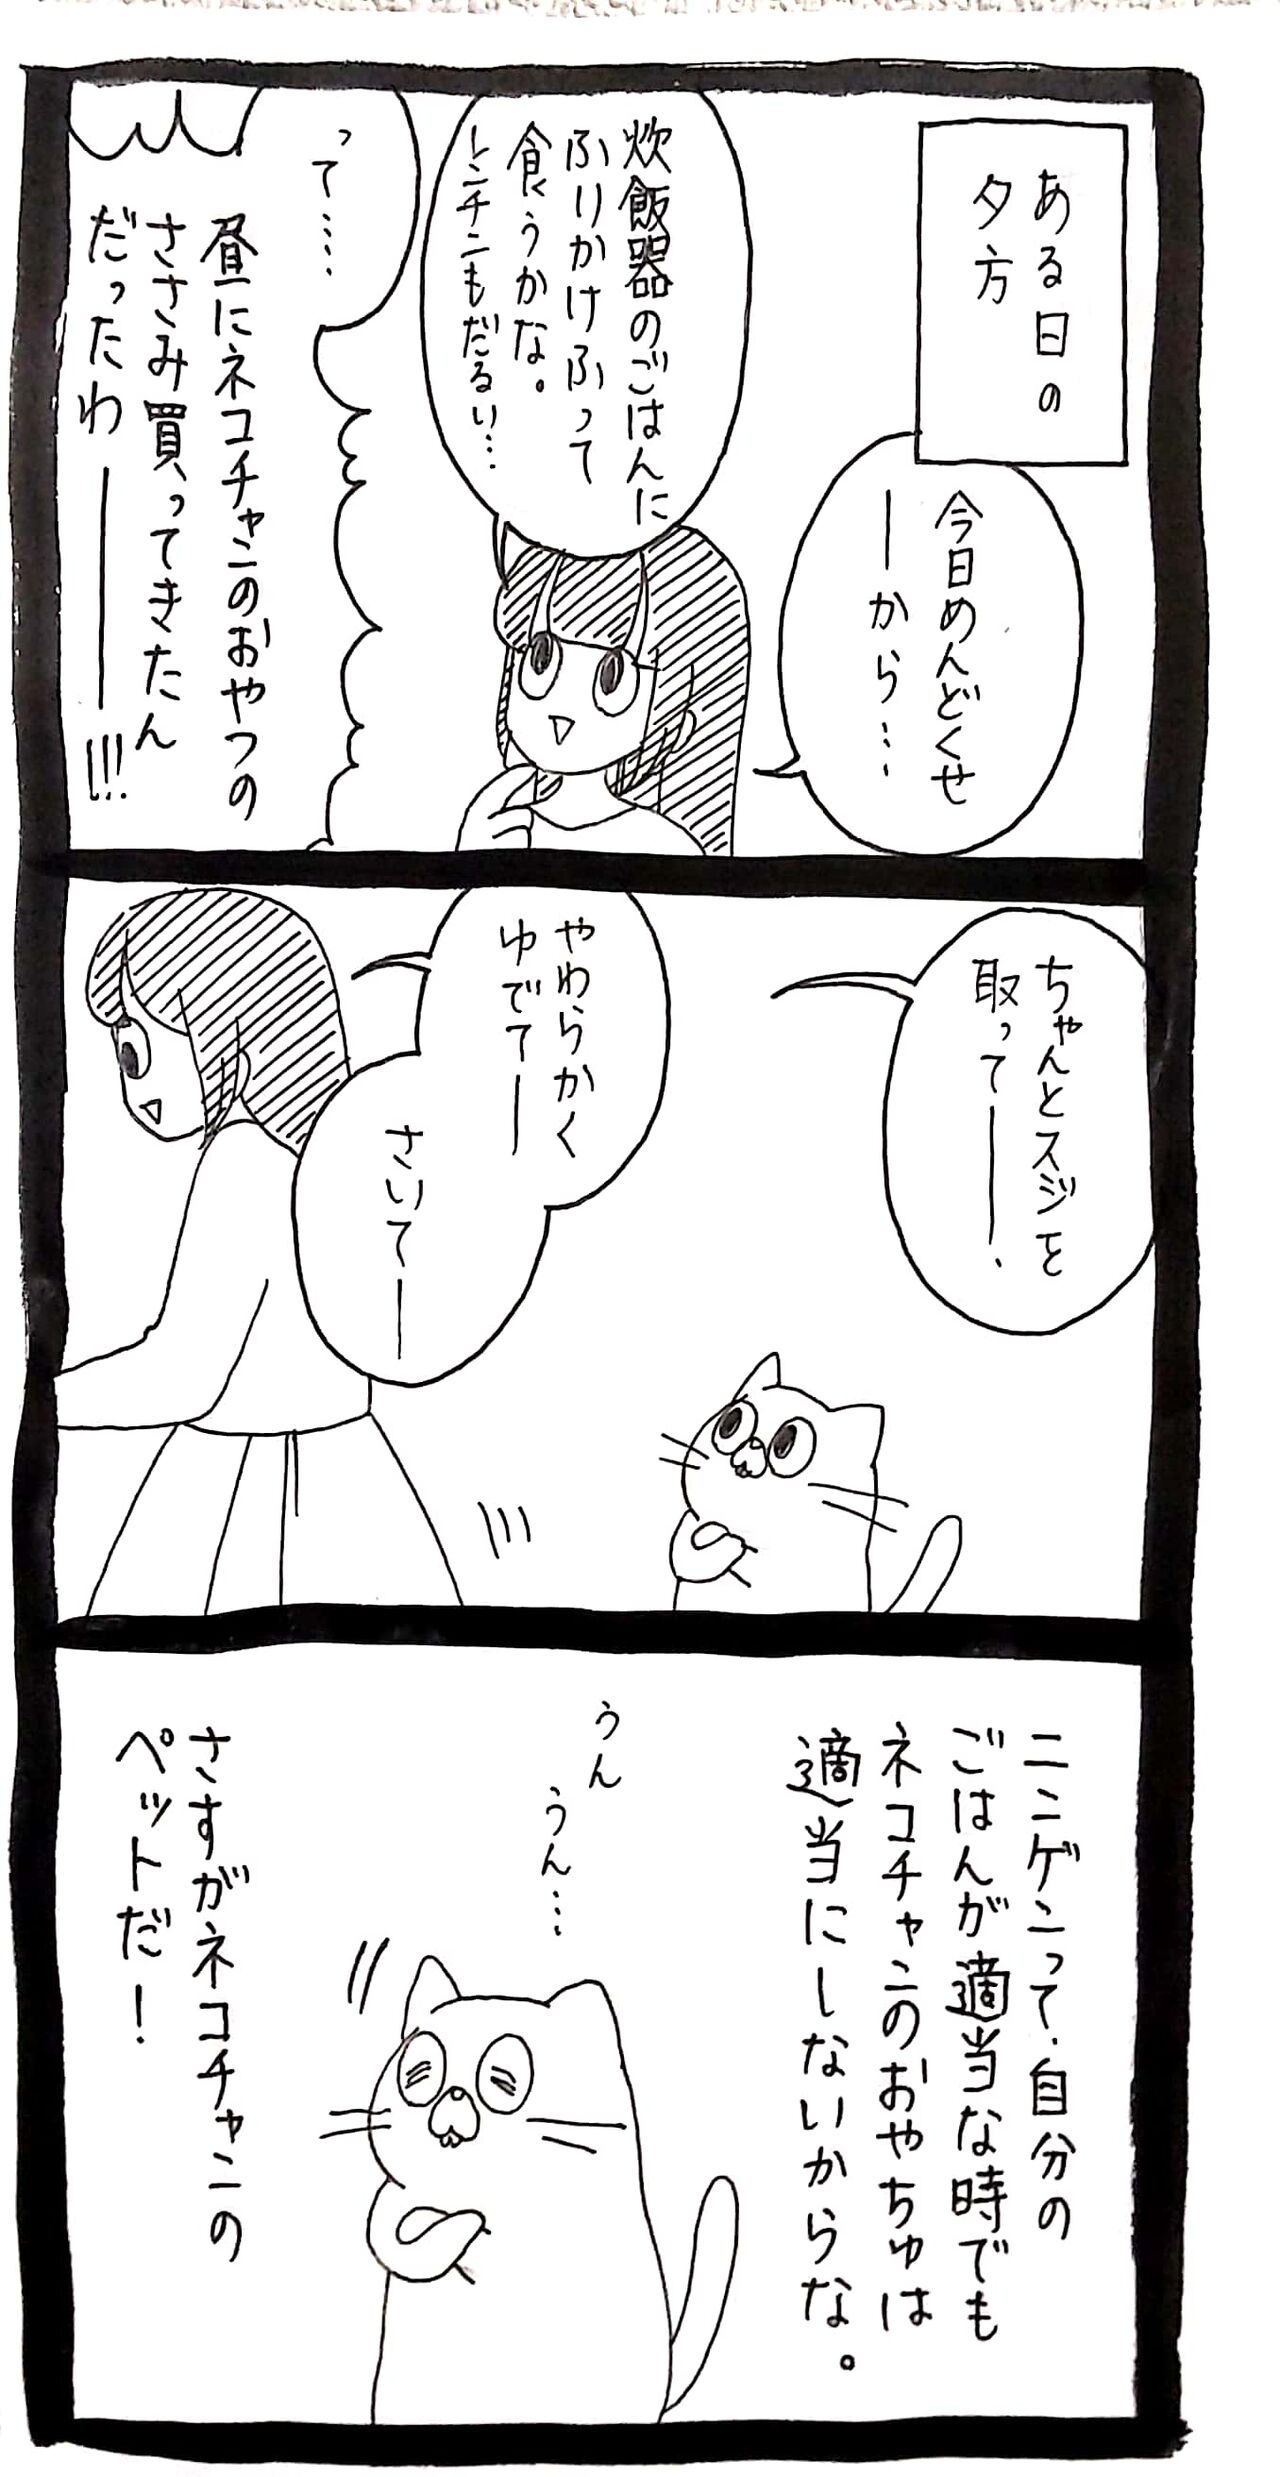 ある日の
夕方
今日めんどくせ
ーから…
炊飯器のごはんに
ふりかけふって
食うかな。
レンチンもだるい…
って……
昼にネコチャンのおやつの
ささみ買ってきたん
だったわ――――!!!
ちゃんとスジを
取って――、
やわらかく
ゆでてー
さいてー
ニンゲンって、自分の
ごはんが適当な時でも
ネコチャンのおやちゅは
適当にしないからな。
うん
うん…
さすがネコチャンの
ペットだ!